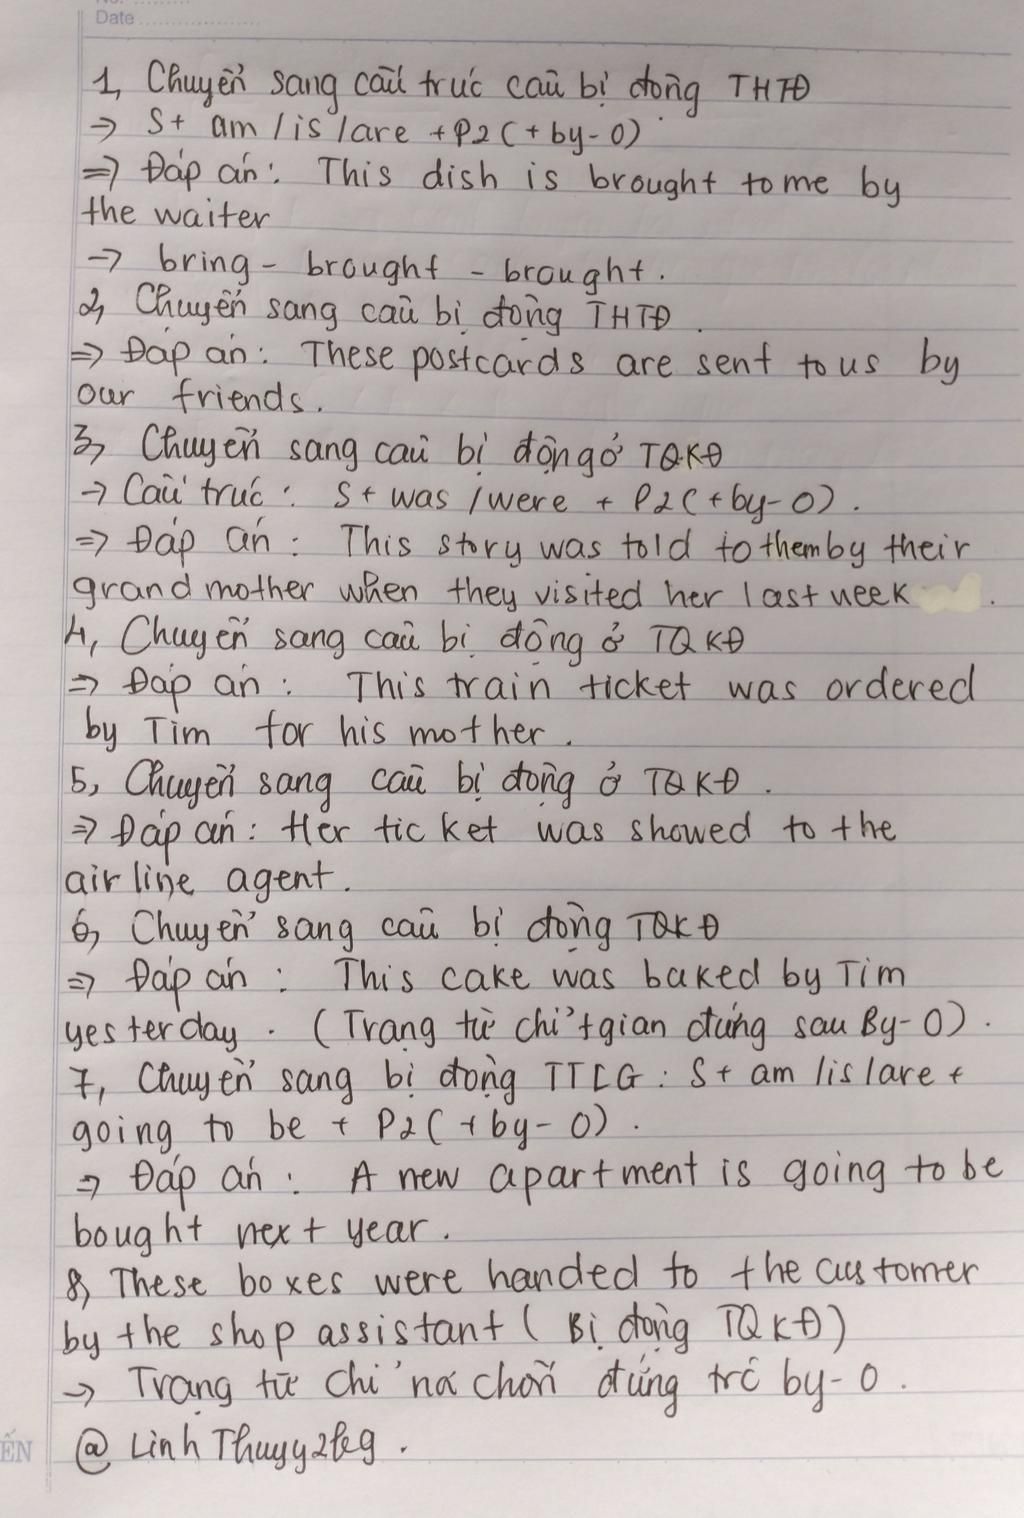 No.
Date
1, Chuyển sang cấu trúc câu bị động THTĐ
→ S+ am / is / are + P2 (+ by - O)
⇒ Đáp án : This dish is brought to me by
the waiter
→ bring - brought - brought .
2, Chuyển sang câu bị động THTĐ .
⇒ Đáp án : These postcards are sent to us by
our friends .
3, Chuyển sang câu bị động ở TQKĐ
→ Cấu trúc : S+ was / were + P2 (+ by - O) .
⇒ Đáp án : This story was told to them by their
grandmother when they visited her last week .
4, Chuyển sang câu bị động ở TQKĐ
⇒ Đáp án : This train ticket was ordered
by Tim for his mother .
5, Chuyển sang câu bị động ở TQKĐ .
⇒ Đáp án : Her ticket was showed to the
airline agent .
6, Chuyển sang câu bị động TQKĐ
⇒ Đáp án : This cake was baked by Tim
yesterday . (Trạng từ chỉ tgian đứng sau By - O) .
7, Chuyển sang bị động TTLG : S + am / is / are +
going to be + P2 (+ by - O) .
⇒ Đáp án : A new apartment is going to be
bought next year .
8, These boxes were handed to the customer
by the shop assistant ( Bị động TQKĐ )
→ Trạng từ chỉ nơi chốn đứng trc by - O .
ẾN @ Linh Thuyy2k9 .